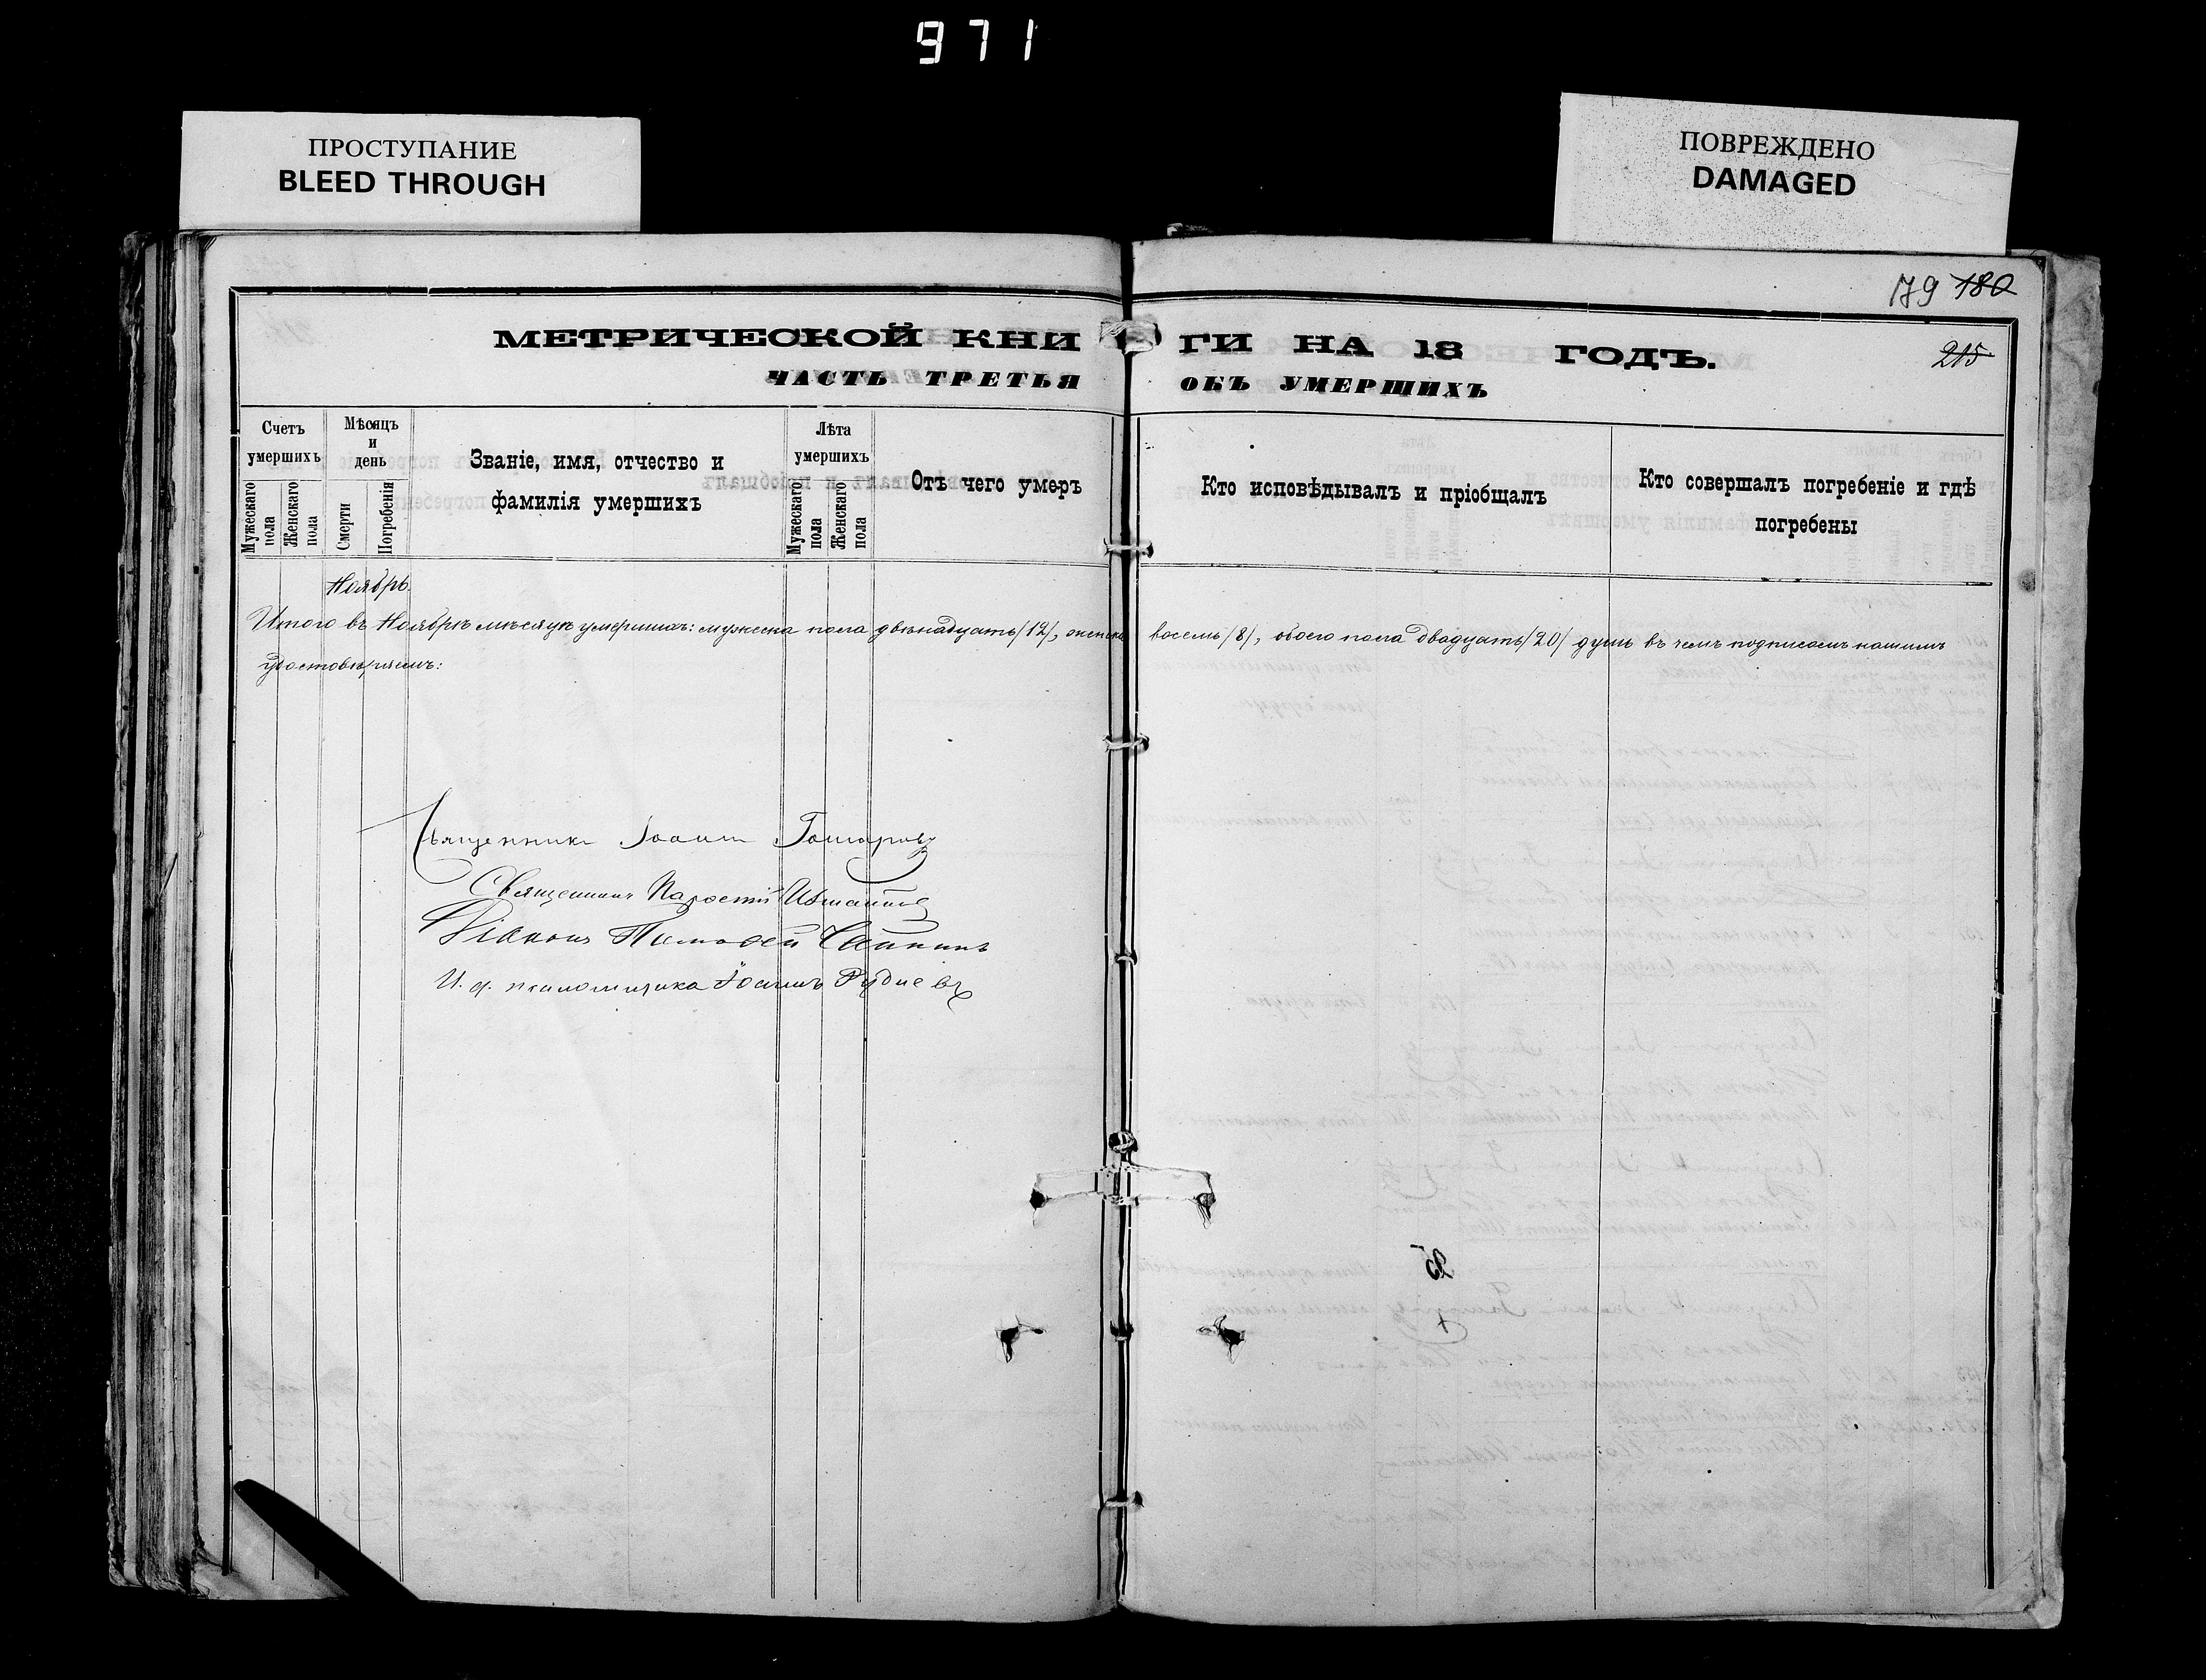 971
ПРОСТУПАНИЕ
BLEED THROUGH
ПОВРЕЖДЕНО
DAMAGED
179 180
215
МЕТРИЧЕСКОЙ КНИГИ НА 18 ГОДЪ.
ЧАСТЬ ТРЕТЬЯ ОБЪ УМЕРШИХЪ
Счетъ умершихъ
Мужескаго пола
Женскаго пола
Мѣсяцъ и день
Смерти
Погребенія
Званіе, имя, отчество и
фамилія умершихъ
Лѣта умершихъ
Мужескаго пола
Женскаго пола
Отъ чего умеръ
Кто исповѣдывалъ и пріобщалъ
Кто совершалъ погребеніе и гдѣ
погребены
Ноябрь.
Итого въ Ноябрѣ мѣсяцѣ умершихъ: мужеска пола двѣнадцать /12/, женска восемь /8/, обоего пола двадцать /20/ душъ въ чемъ подписомъ нашимъ
удостовѣряемъ:
Священникъ Іоаннъ
Священникъ
Діаконъ Тимофей
И. д. псаломщика Іоаннъ Рудневъ
25